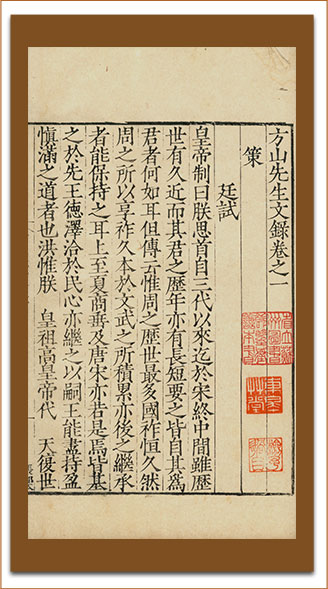 方山先生文錄卷之一
策
廷試
皇帝制曰朕思首自三代以來迄於宋終中間雖歷
世有久近而其君之歷年亦有長短要之皆自其爲
君者何如耳但傳云惟周之歷世最多國祚恒久然
周之所以享祚久本於文武之所積累亦後之繼承
者能保持之耳上至夏商垂及唐宋亦若是焉皆基
之於先王德澤洽於民心亦繼之以嗣王能盡持盈
愼滿之道者也洪惟朕 皇祖高皇帝代 天復世